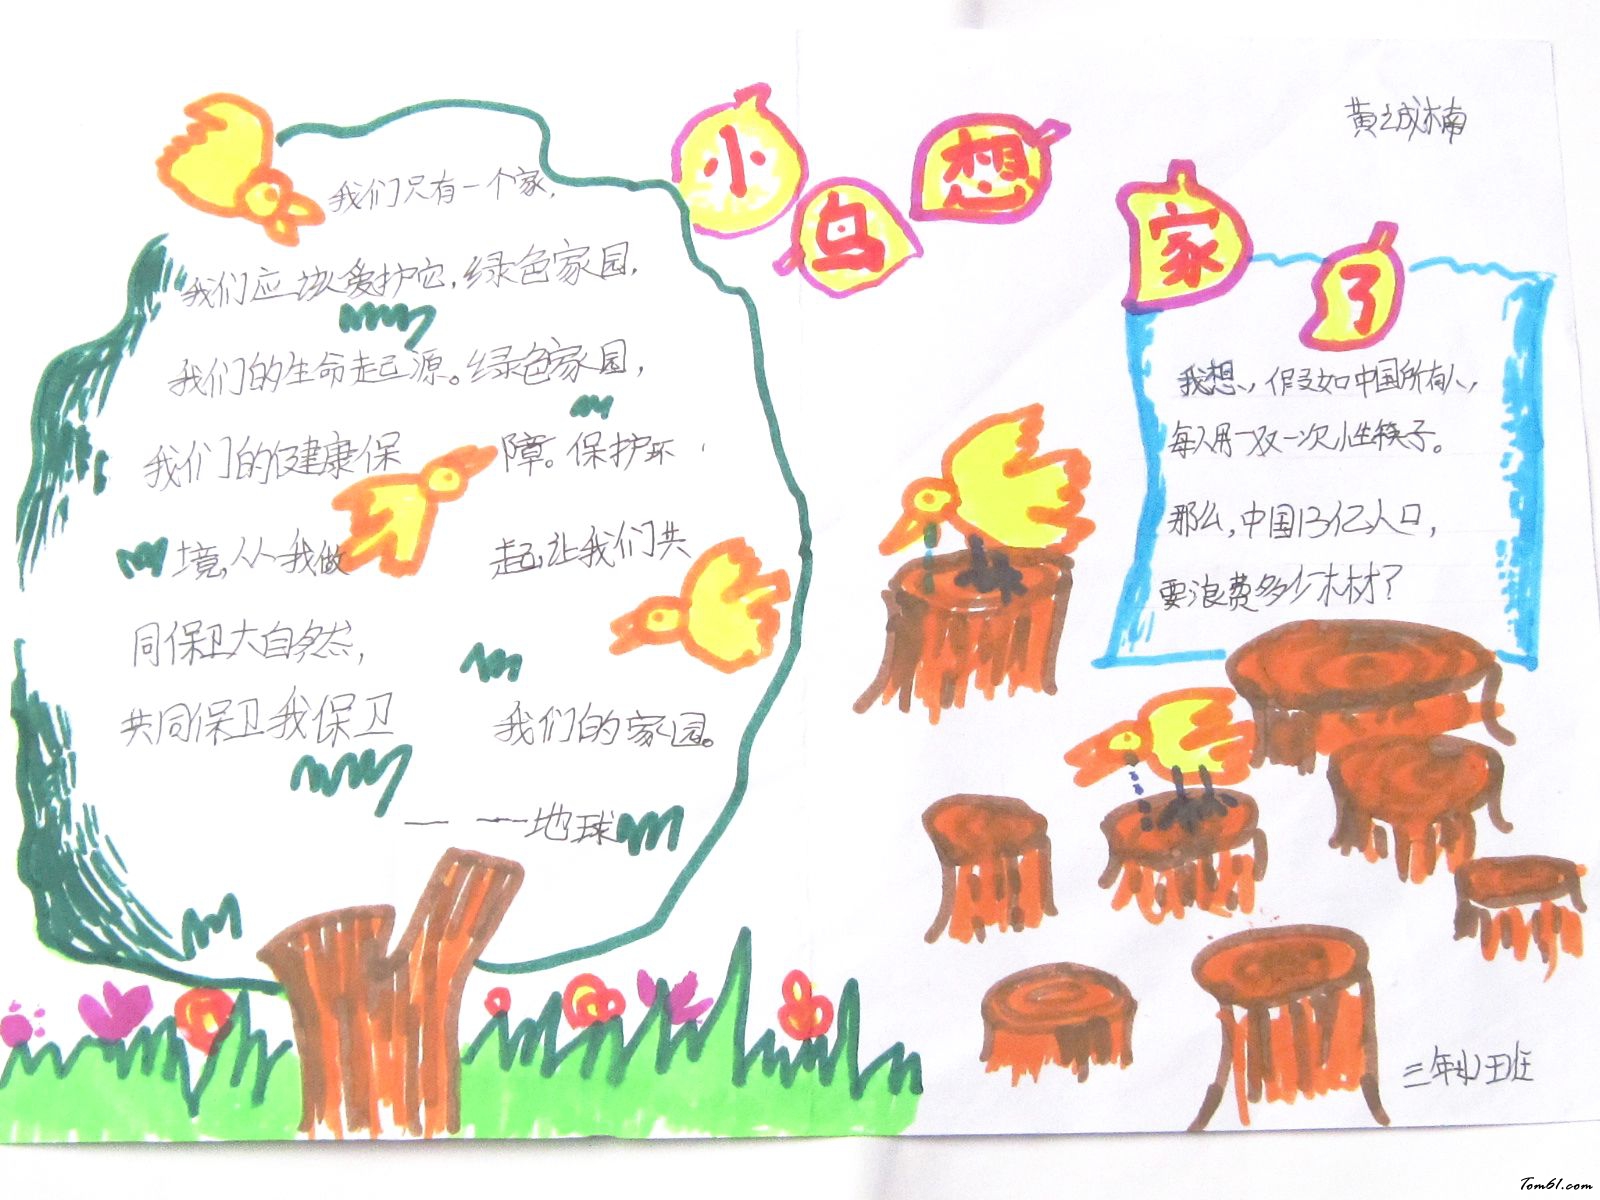 小鸟想家了
我们只有一个家,
我们应该爱护它,绿色家园,
我们的生命起源。绿色家园,
我们的健康保障。保护环
境,从我做起,让我们共
同保卫大自然,
共同保卫我保卫我们的家园。
——地球
我想,假如中国所有人,
每人用一双一次性筷子。
那么,中国13亿人口,
要浪费多少木材?
Tom61.com